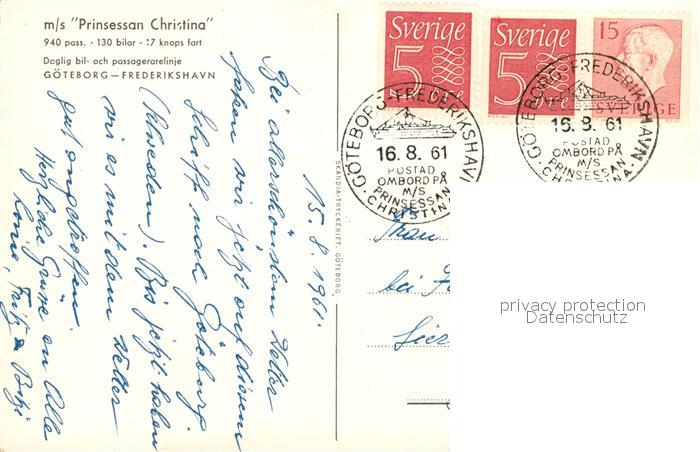 m/s "Prinsessan Christina"
940 pass. - 130 bilar - 17 knops fart
Daglig bil- och passagerarelinje
GÖTEBORG—FREDERIKSHAVN
15.8.1961.
Bei allerschönstem Wetter
fahren wir jetzt auf diesem
Schiff nach Göteburg
(Schweden). Bis jetzt haben
wir es mit dem Wetter
gut angetroffen
Herzliche Grüße an Alle
Fritz &
SKANDIA-TRYCKERIET, GÖTEBORG
Sverige
5
ÖRE
Sverige
5
ÖRE
15
SVERIGE
GÖTEBORG-FREDERIKSHAVN
16.8.61
POSTAD
OMBORD PÅ
M/S
PRINSESSAN
CHRISTINA
GÖTEBORG-FREDERIKSHAVN
16.8.61
POSTAD
OMBORD PÅ
M/S
PRINSESSAN
CHRISTINA
Frau
bei
privacy protection
Datenschutz